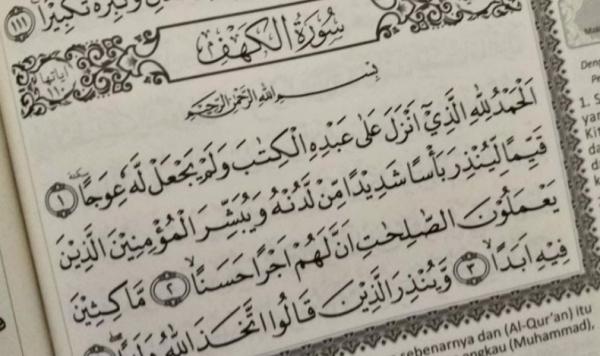 وَكَبِّرْهُ تَكْبِيْرًا ࣖ ١١١
سُوْرَةُ الْكَهْفِ
اٰيَاتُهَا
١١٠
بِسْمِ اللّٰهِ الرَّحْمٰنِ الرَّحِيْمِ
اَلْحَمْدُ لِلّٰهِ الَّذِيْٓ اَنْزَلَ عَلٰى عَبْدِهِ الْكِتٰبَ وَلَمْ يَجْعَلْ لَّهٗ عِوَجًا ١
قَيِّمًا لِّيُنْذِرَ بَأْسًا شَدِيْدًا مِّنْ لَّدُنْهُ وَيُبَشِّرَ الْمُؤْمِنِيْنَ الَّذِيْنَ
يَعْمَلُوْنَ الصّٰلِحٰتِ اَنَّ لَهُمْ اَجْرًا حَسَنًا ٢ مَّاكِثِيْنَ
فِيْهِ اَبَدًا ٣ وَّيُنْذِرَ الَّذِيْنَ قَالُوا اتَّخَذَ اللّٰهُ وَلَدًا
1. S
yan
Kit
sebenarnya dan (Al-Qur'an) itu
(Muhammad),